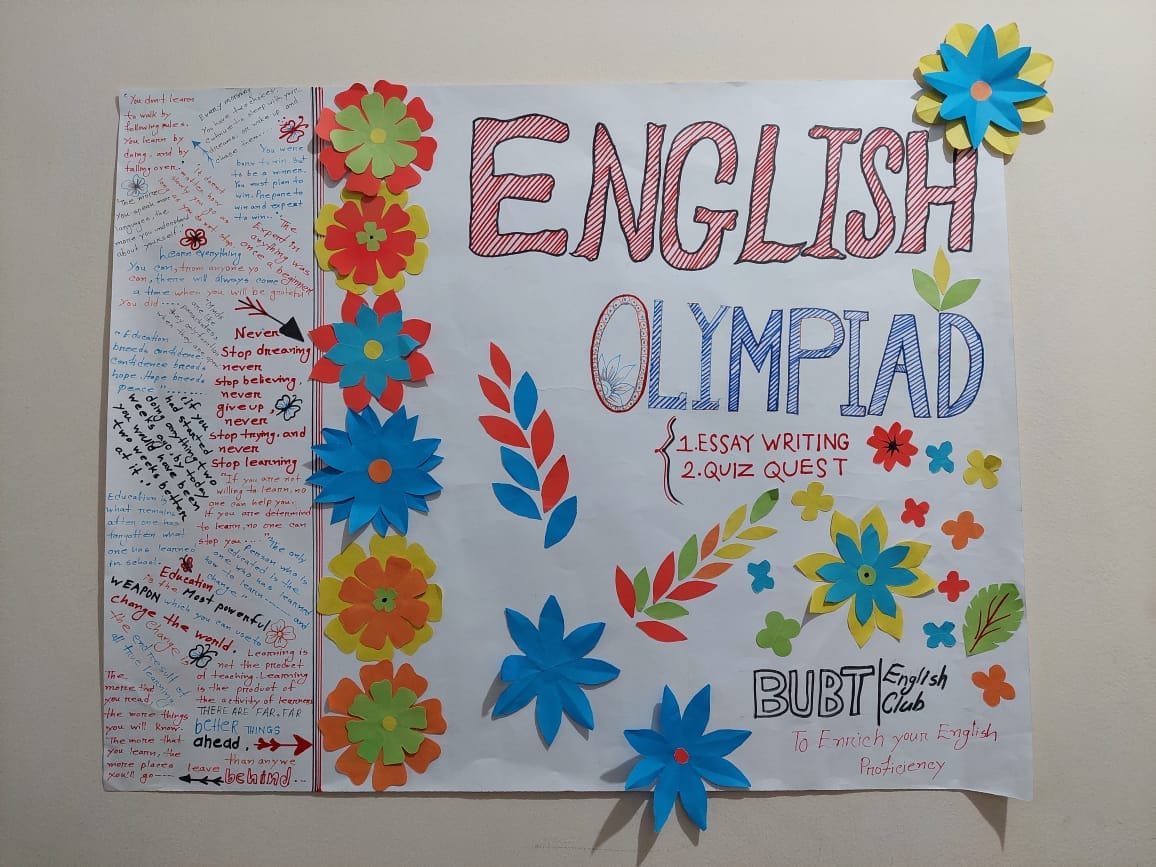 "You don't learn
to walk by
following rules.
You learn by
doing, and by
falling over."
Every morning
You have two choices,
continue to sleep with your
dreams, or wake up and
chase them...
You were
born to win. But
to be a winner.
You must plan to
win. Prepare to
win and expect
to win..."
"It doesn't
matter how
slowly you go as
long as you do not stop
"The more
You speak more
languages, the
more you understand
about yourself."
"The
Expert in
anything was
once a beginner
Learn everything
You can, from anyone yo
can, there will always come
a time when you will be grateful
You did----
"Education
breeds confidence
Confidence breeds
hope. Hope breeds
peace"
Never
Stop dreaming
never
stop believing,
never
give up,
never
stop trying, and
never
Stop learning
"if you
had started
doing anything two
weeks ago, by today
you would have been
two weeks better
at it...
"If you are not
willing to learn, no
one can help you.
If you are determined
to learn, no one can
stop you..."
Education is
what remains
after one has
forgotten what
one has learned
in school.
"The only
person who is
educated is the
one who has learned
how to learn and
change"
Education
is the Most powerful
WEAPON which you can use to
change the world.
The
change is
the end result of
all true learning
Learning is
not the product
of teaching. Learning
is the product of
the activity of learners
The
more that
you read,
the more things
you will know.
The more that
you learn, the
more places
you'll go---
THERE ARE FAR, FAR
beTTER THINGS
ahead,
than anywe
leave
behind...
ENGLISH
OLYMPIAD
1.ESSAY WRITING
2.QUIZ QUEST
BUBT|English
Club
To Enrich your English
Proficiency